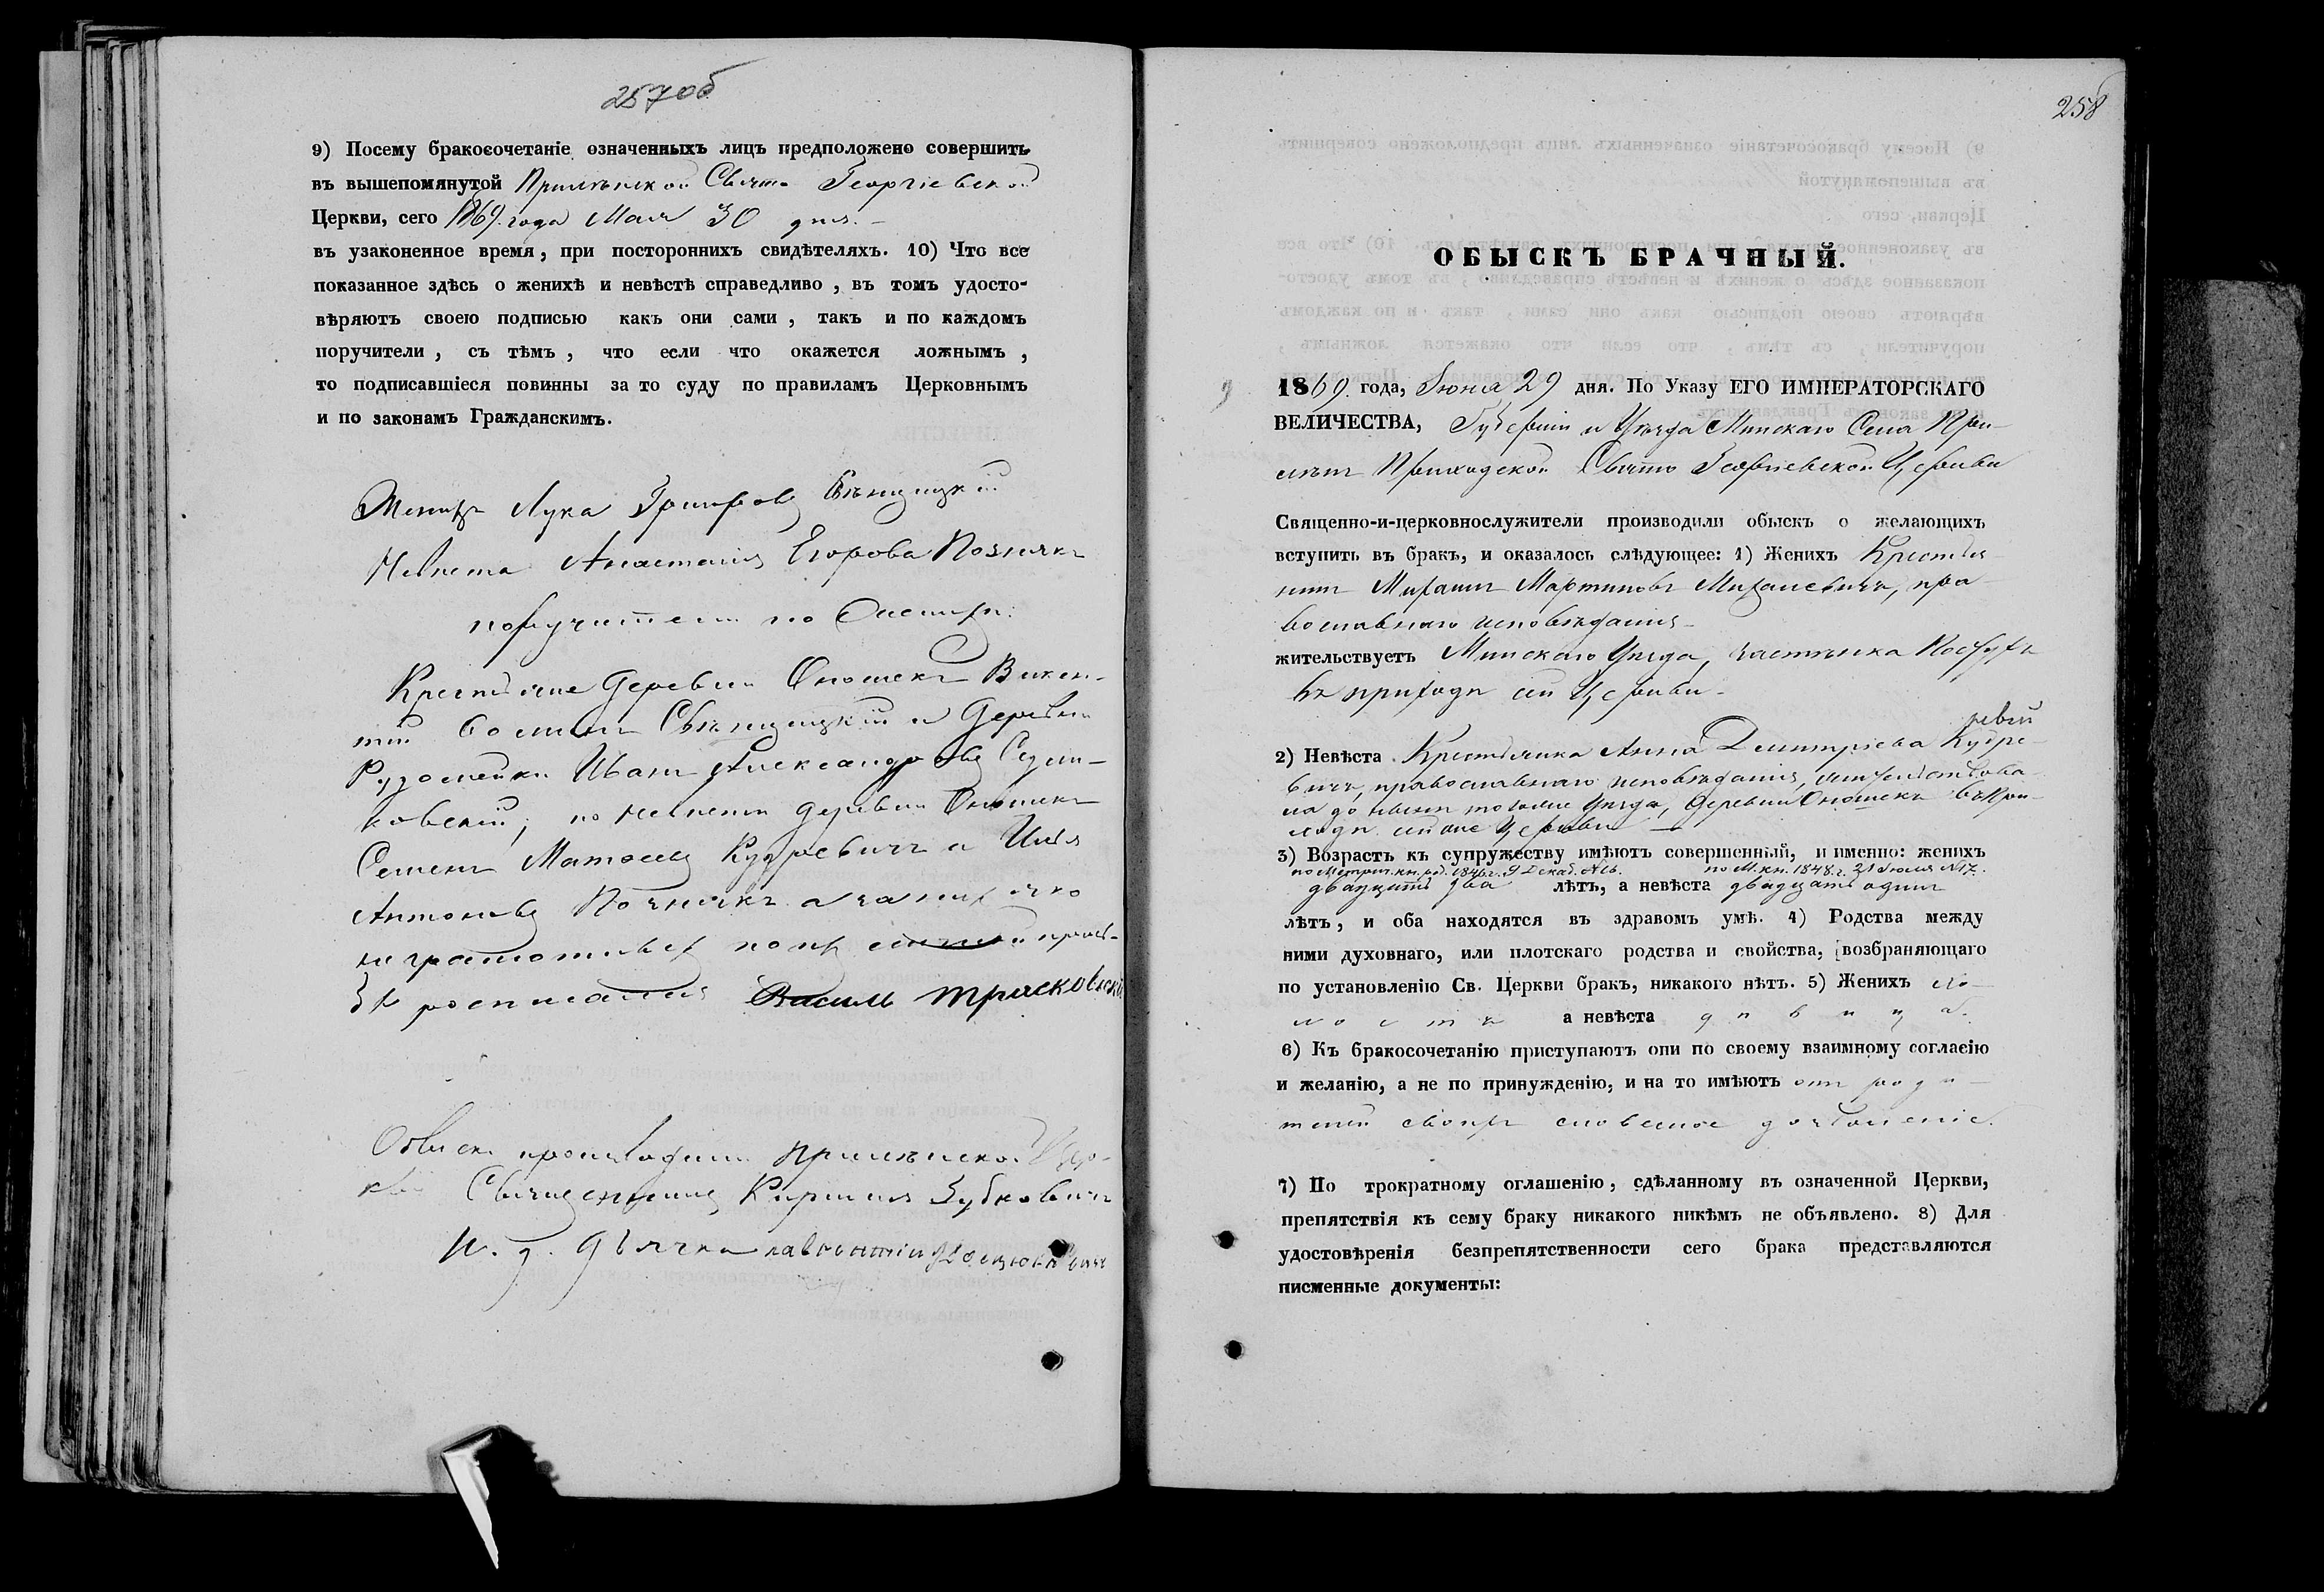 257об
9) Посему бракосочетаніе означенныхъ лицъ предположено совершить
въ вышепомянутой Прилѣпской Свято Георгіевской
Церкви, сего 1869. года Мая 30 дня. –
въ узаконенное время, при постороннихъ свидѣтеляхъ. 10) Что все
показанное здѣсь о женихѣ и невѣстѣ справедливо, въ томъ удосто-
вѣряютъ своею подписью какъ они сами, такъ и по каждомъ
поручители, съ тѣмъ, что если что окажется ложнымъ,
то подписавшіеся повинны за то суду по правиламъ Церковнымъ
и по законамъ Гражданскимъ.
Женихъ Лука Свѣнцицкій
Невѣста Анастасія Егорова Познякъ
поручители по Женихѣ:
Крестьяне деревни Оношекъ Викен-
тій Свѣнцицкій и деревни
Иванъ Александровъ Седли-
ковскій; по невѣстѣ деревни Оношекъ
Семенъ Кудревичъ и Илья
Антоновъ Познякъ а за нихъ
неграмотныхъ по их
росписался
Обыскъ производили Прилѣпской Цер-
кви Священникъ Кириллъ Зубковичъ
И. д. дьячка
258
ОБЫСКЪ БРАЧНЫЙ.
1869. года, Іюня 29 дня. По Указу ЕГО ИМПЕРАТОРСКАГО
ВЕЛИЧЕСТВА, Губерніи и Уѣзда Минскаго Села При-
лѣпъ Приходской Свято Георгіевской Церкви
Священно-и-церковнослужители производили обыскъ о желающихъ
вступить въ бракъ, и оказалось слѣдующее: 1) Женихъ Крестья
нинъ Михаилъ Мартиновъ Михалевичъ, пра
вославнаго исповѣданія –
жительствуетъ Минскаго Уѣзда,
въ приходѣ сей Церкви –
2) Невѣста Крестьянка Анна Димитріева Кудре-
вичъ, православнаго исповѣданія, жительствова-
ла до нынѣ того же Уѣзда, деревни Оношекъ въ при-
ходѣ сей же Церкви –
3) Возрастъ къ супружеству имѣютъ совершенный, и именно: женихъ
по метрич. кн. род. 1846 г. 9 Декаб. №16. по М. кн. 1848 г. 21 Іюля №17.
двадцать два лѣтъ, а невѣста двадцать одинъ
лѣтъ, и оба находятся въ здравомъ умѣ. 4) Родства между
ними духовнаго, или плотскаго родства и свойства, возбраняющаго
по установленію Св. Церкви бракъ, никакого нѣтъ. 5) Женихъ хо-
лостъ а невѣста дѣвица.
6) Къ бракосочетанію приступаютъ они по своему взаимному согласію
и желанію, а не по принужденію, и на то имѣютъ отъ роди-
телей своихъ словесное дозволеніе.
7) По трократному оглашенію, сдѣланному въ означенной Церкви,
препятствія къ сему браку никакого никѣмъ не объявлено. 8) Для
удостовѣренія безпрепятственности сего брака представляются
писменные документы: